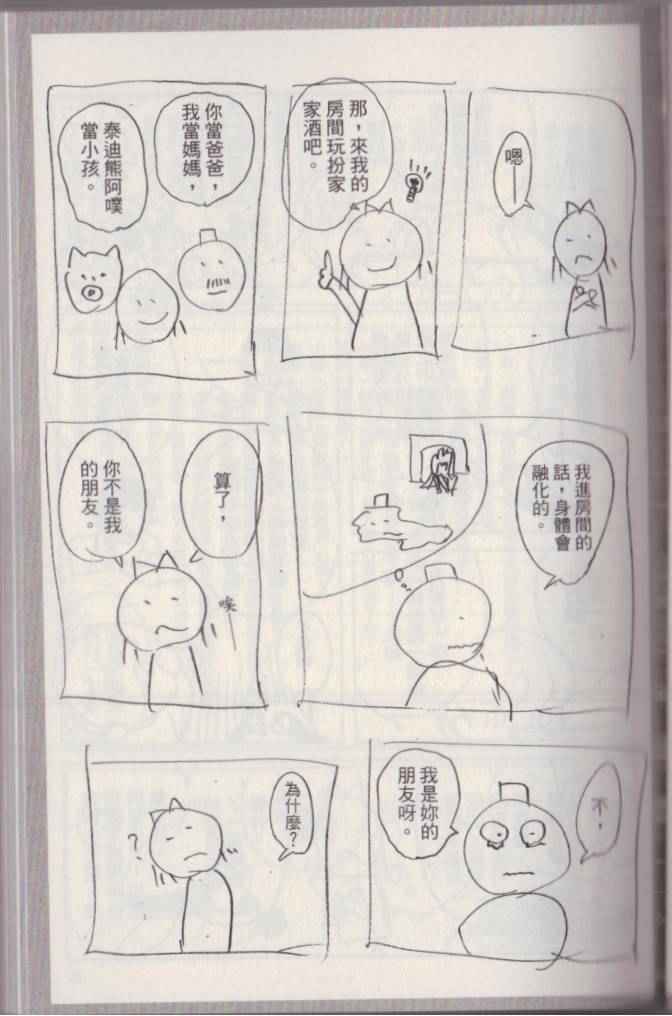 嗯—
那，來我的
房間玩扮家
家酒吧。
你當爸爸，
我當媽媽，
泰迪熊阿噗
當小孩。
我進房間的
話，身體會
融化的。
算了，
唉—
你不是我
的朋友。
不，
我是妳的
朋友呀。
為什麼？
？